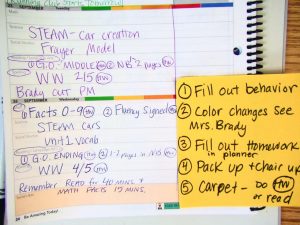 STEAM - Car creation
Frayer Model
G.O. MIDDLE HW NB 2 pages
WW 2/5 HW
Brady out PM
SEPTEMBER Wednesday
① Facts 0-9 HW ② Fluency Signed
STEAM Cars
Unit 1 Vocab
① G.O. ENDING HW ② 1-2 pages in NB
WW 4/5 HW
Remember READ for 40 MINS +
MATH FACTS 15 MINS.
Be Amazing Today!
① Fill out behavior
② Color changes see
Mrs. Brady
③ Fill out homework
in planner
④ Pack up + chair up
⑤ Carpet - Do HW
or read